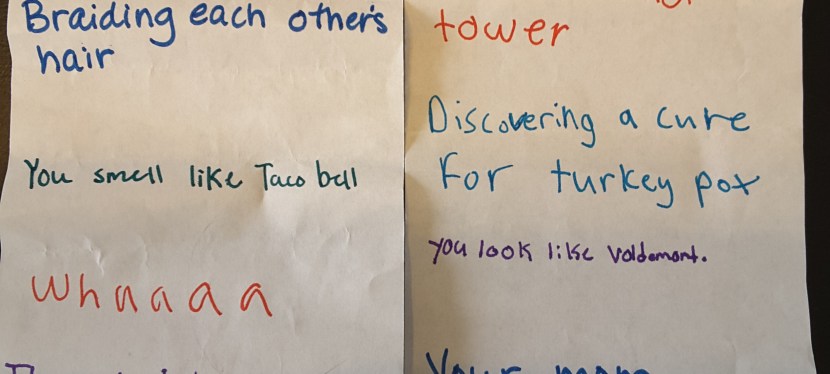 Braiding each other's
hair
You smell like Taco bell
Whaaaa
tower
Discovering a cure
For turkey pox
you look like Voldemont.